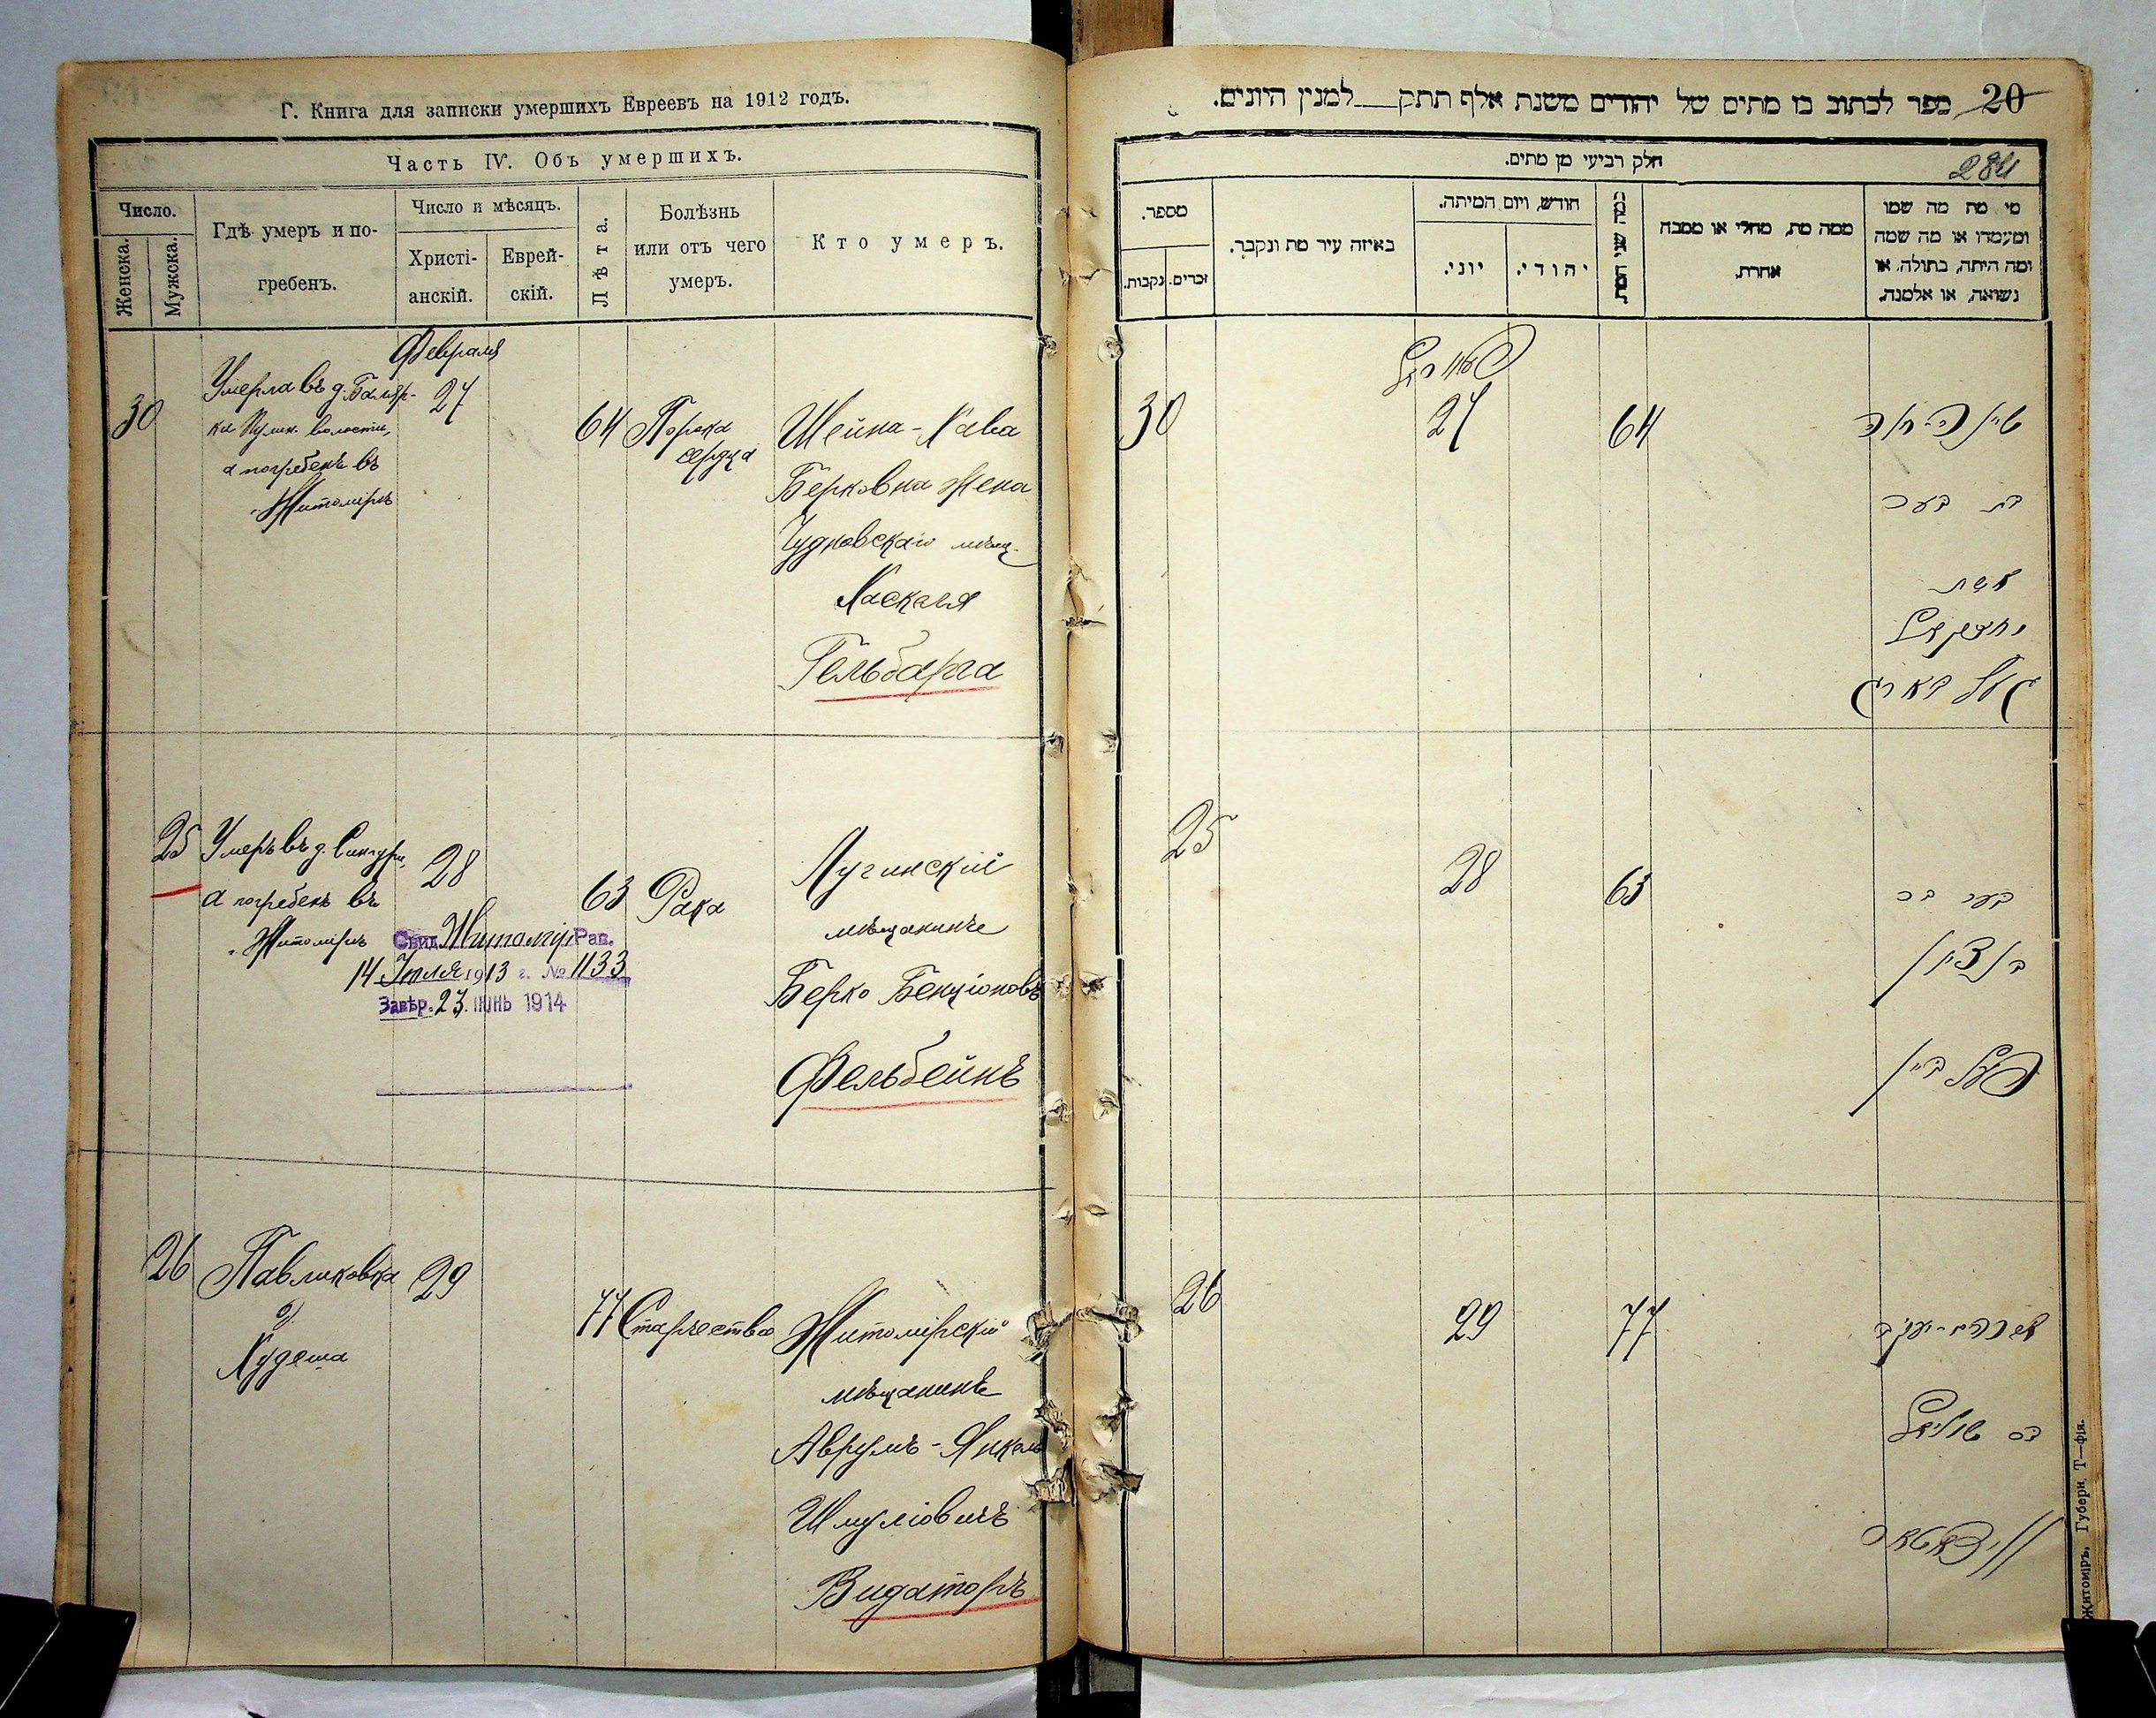 Г. Книга для записки умершихъ Евреевъ на 1912 годъ.
Часть IV. Объ умершихъ.
Число.
Женска.
Мужска.
Гдѣ умеръ и по-
гребенъ.
Число и мѣсяцъ.
Христі-
анскій.
Еврей-
скій.
Лѣта.
Болѣзнь
или отъ чего
умеръ.
Кто умеръ.
Февраля
30
Умерла въ д.
волости,
а погребенъ въ
Житомірѣ
27
64
Порока
сердца
Шейна-Хава
Берковна жена
Чудновскаго мѣщ.
Хаскеля
Гельбарга
25
Умеръ въ д. Сингури,
а погребенъ въ
Житомірѣ
28
Свид. Житомір Рав.
14 Іюля 1913 г. № 1133
Завѣр. 23. ІЮНЬ 1914
63
Рака
Лугинскій
мѣщанинъ
Берко Бенціоновъ
Фельбейнъ
26
Павликовка
д.
29
77
Старчество
Житомірскій
мѣщанинъ
Аврумъ-Янкель
Шмуліовичъ
Видаторъ
20
ספר לכתוב בו מתים של יהודים משנת אלף תתק למנין היונים.
חלק רביעי מן מתים.
284
מספר.
נקבות.
זכרים.
באיזה עיר מת ונקבר.
חודש, ויום המיתה.
יוני.
יהודי.
כמה שני המת
ממה מת, מחלי או מסבה
אחרת.
מי מת מה שמו
ומעמדו או מה שמה
ומה היתה, בתולה, או
נשואה, או אלמנה.
פעווראל
30
27
64
שיינה-חוה
בת בערב
אשת
יחזקאל
געלבארג
25
28
63
בערב
בן ציון
פעלביין
26
29
77
אברהם-יעקב
שמואל
ווידאטאר
Житоміръ, Губерн. Т—фія.